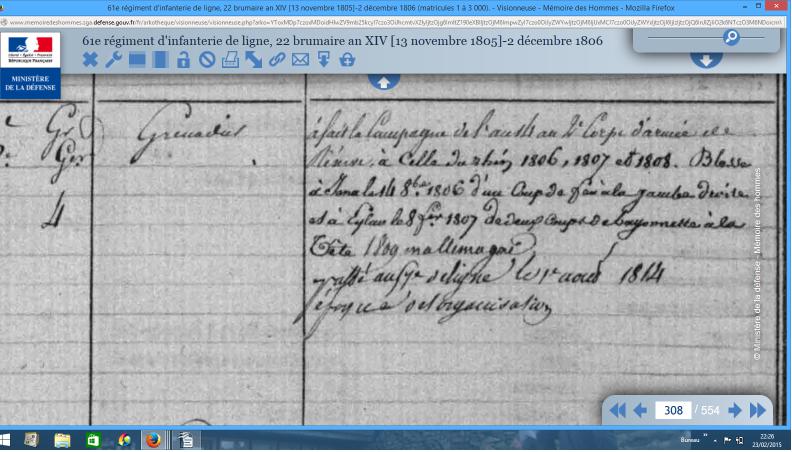 61e régiment d'infanterie de ligne, 22 brumaire an XIV [13 novembre 1805]-2 décembre 1806 (matricules 1 à 3 000). - Visionneuse - Mémoire des Hommes - Mozilla Firefox
www.memoiredeshommes.sga.defense.gouv.fr/fr/arkotheque/visionneuse/visionneuse.php?arko=
61e régiment d'infanterie de ligne, 22 brumaire an XIV [13 novembre 1805]-2 décembre 1806
RÉPUBLIQUE FRANÇAISE
MINISTÈRE
DE LA DÉFENSE
Gr
Ger
4
Grenadier
a fait la Campagne de l'an 14 au 2e Corps d'armée de
Réserve, à Celle du rhin 1806, 1807 et 1808. Blessé
à Jena le 14 8bre 1806 d'un Coup de feu à la jambe droite
et à Eylau le 8 fer 1807 de deux Coups de bayonnette à la
Tête 1809 en allemagne
passé au de ligne le 1er aout 1814
époque d'organisation
© Ministère de la défense - Mémoire des hommes
308 / 554
Bureau
22:26
23/02/2015